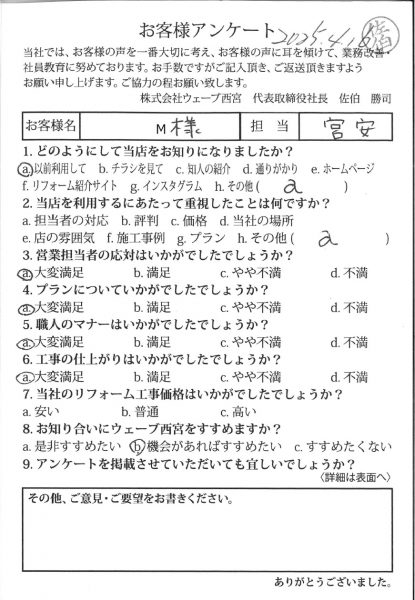 お客様アンケート 2025.4.18 佐伯
当社では、お客様の声を一番大切に考え、お客様の声に耳を傾けて、業務改善・
社員教育に努めております。お手数ですがご記入頂き、ご返送頂きますよう
お願い申し上げます。ご協力の程お願い致します。
株式会社ウェーブ西宮 代表取締役社長 佐伯 勝司
お客様名 M様 担当 宮安
1. どのようにして当店をお知りになりましたか?
a.以前利用して b. チラシを見て c. 知人の紹介 d. 通りがかり e. ホームページ
f. リフォーム紹介サイト g. インスタグラム h. その他( a )
2. 当店を利用するにあたって重視したことは何ですか?
a. 担当者の対応 b. 評判 c. 価格 d. 当社の場所
e. 店の雰囲気 f. 施工事例 g. プラン h. その他( a )
3. 営業担当者の応対はいかがでしたでしょうか?
a.大変満足 b. 満足 c. やや不満 d. 不満
4. プランについていかがでしたでしょうか?
a.大変満足 b. 満足 c. やや不満 d. 不満
5. 職人のマナーはいかがでしたでしょうか?
a.大変満足 b. 満足 c. やや不満 d. 不満
6. 工事の仕上がりはいかがでしたでしょうか?
a.大変満足 b. 満足 c. やや不満 d. 不満
7. 当社のリフォーム工事価格はいかがでしたでしょうか?
a. 安い b. 普通 c. 高い
8. お知り合いにウェーブ西宮をすすめますか?
a. 是非すすめたい b.機会があればすすめたい c. すすめたくない
9. アンケートを掲載させていただいても宜しいでしょうか?
〈詳細は表面へ〉
その他、ご意見・ご要望をお書きください。
ありがとうございました。